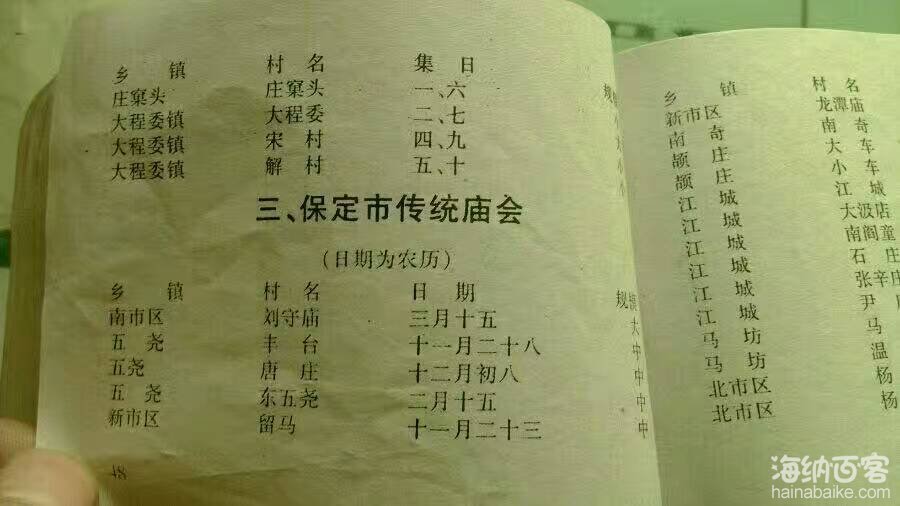 乡 镇 村 名 集 日
庄窠头 庄窠头 一、六
大程委镇 大程委 二、七
大程委镇 宋 村 四、九
大程委镇 解 村 五、十
三、保定市传统庙会
(日期为农历)
乡 镇 村 名 日 期 规模
南市区 刘守庙 三月十五 大
五 尧 丰 台 十一月二十八 中
五尧 唐 庄 十二月初八 中
五 尧 东五尧 二月十五 中
新市区 留马 十一月二十三 中
乡 镇 村 名
新市区 龙潭庙
南 奇 南 奇
颉 庄 大 车
颉 庄 小 车
江 城 江 城
江 城 大汲店
江 城 南阎童
江 城 石 庄
江 城 张辛庄
江 城 尹
马 坊 马
马 坊 温
北市区 杨
北市区 杨
海纳百客
hainabaike.com